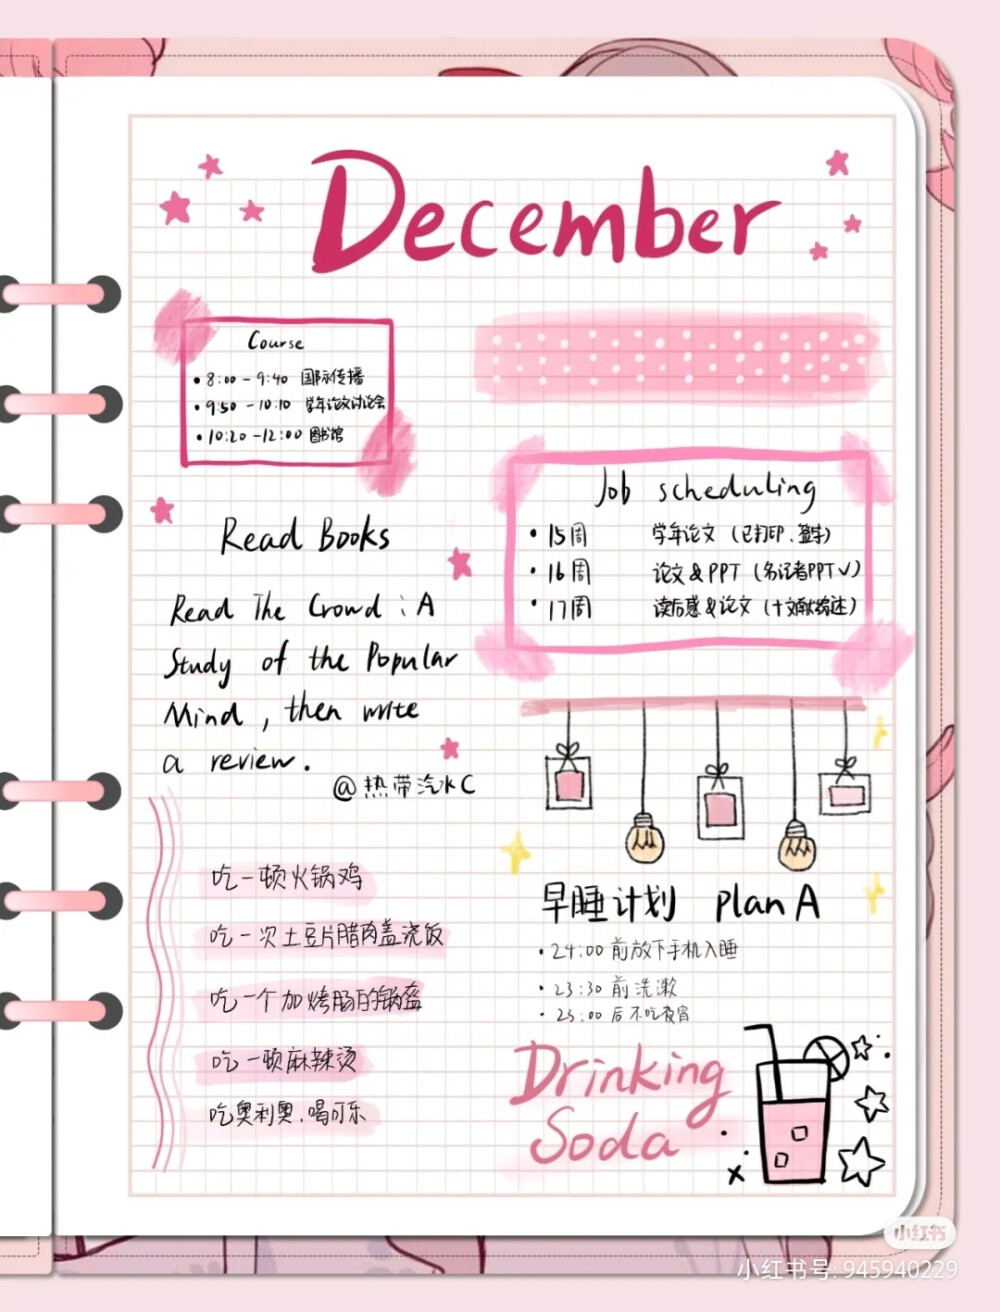 December
Course
•8:00-9:40 国际传播
•9:50-10:10 学年论文讨论会
•10:20-12:00 图书馆
Read Books
Read The Crowd : A
Study of the Popular
Mind , then write
a review .
@热带汽水C
Job scheduling
•15周 学年论文 (已打印、签字)
•16周 论文&PPT (名记者PPT√)
•17周 读后感&论文 (+文献综述)
吃一顿火锅鸡
吃一次土豆片腊肉盖浇饭
吃一个加烤肠的锅盔
吃一顿麻辣烫
吃奥利奥、喝可乐
早睡计划 plan A
•24:00 前放下手机入睡
•23:30 前洗漱
•23:00 后不吃夜宵
Drinking
Soda
小红书
小红书号: 945940229